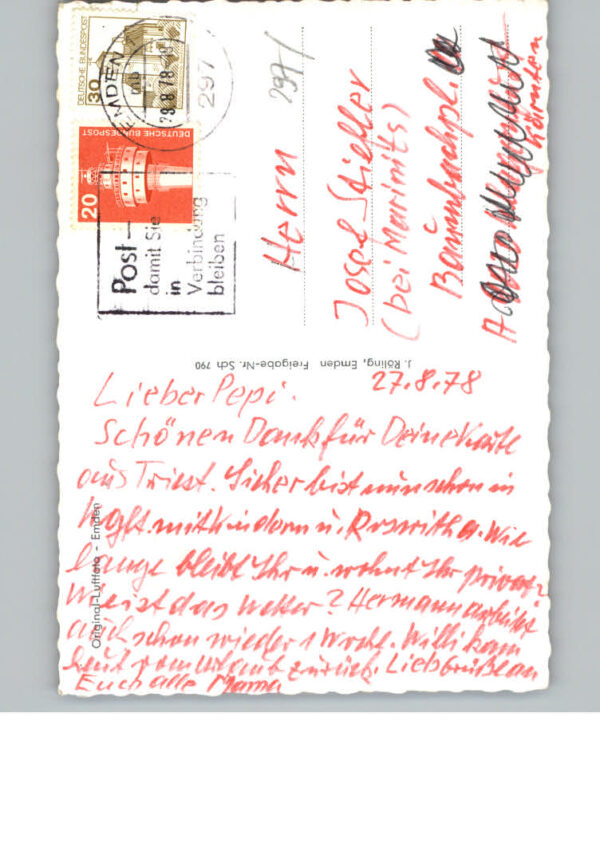 DEUTSCHE BUNDESPOST
30
EMDEN 1
mb
28.8.78
297
DEUTSCHE BUNDESPOST
20
Post-
damit Sie
in
Verbindung
bleiben
297/
Herrn
Josef Stieller
(bei Marinits)
Baumbachpl.
A
Kärnten
J. Rölling, Emden Freigabe-Nr. Sch 790
Original-Luftfoto - Emden
27.8.78
Lieber Pepi.
Schönen Dank für Deine Karte
aus Triest. Sicher bist nun schon in
mit Kindern u. Roswitha. Wie
lange bleibt Ihr u. wohnt Ihr privat?
Wie ist das Wetter? Hermann arbeitet
auch schon wieder 1 Woche. Willi kam
heut vom Urlaub zurück. Lieb Grüße an
Euch alle Mama